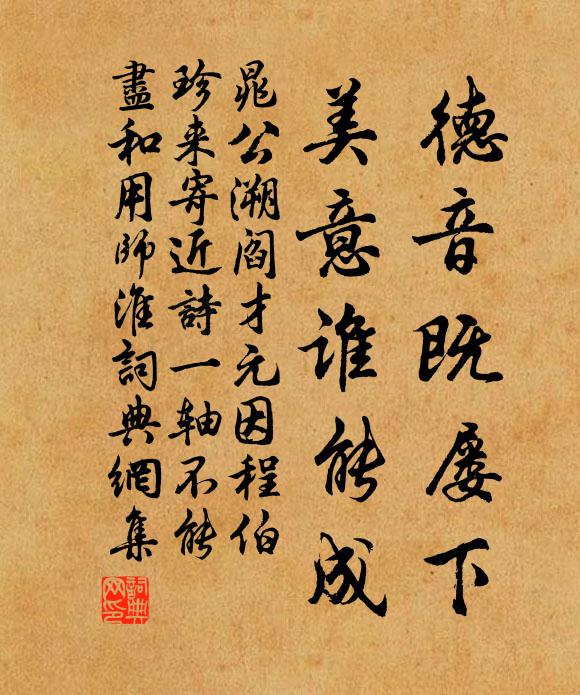 德音既屡下
美意谁能成
晁公溯阎才元因程伯
珍来寄近詩一轴不能
盡和用師淮詞典網集
詞典
网印